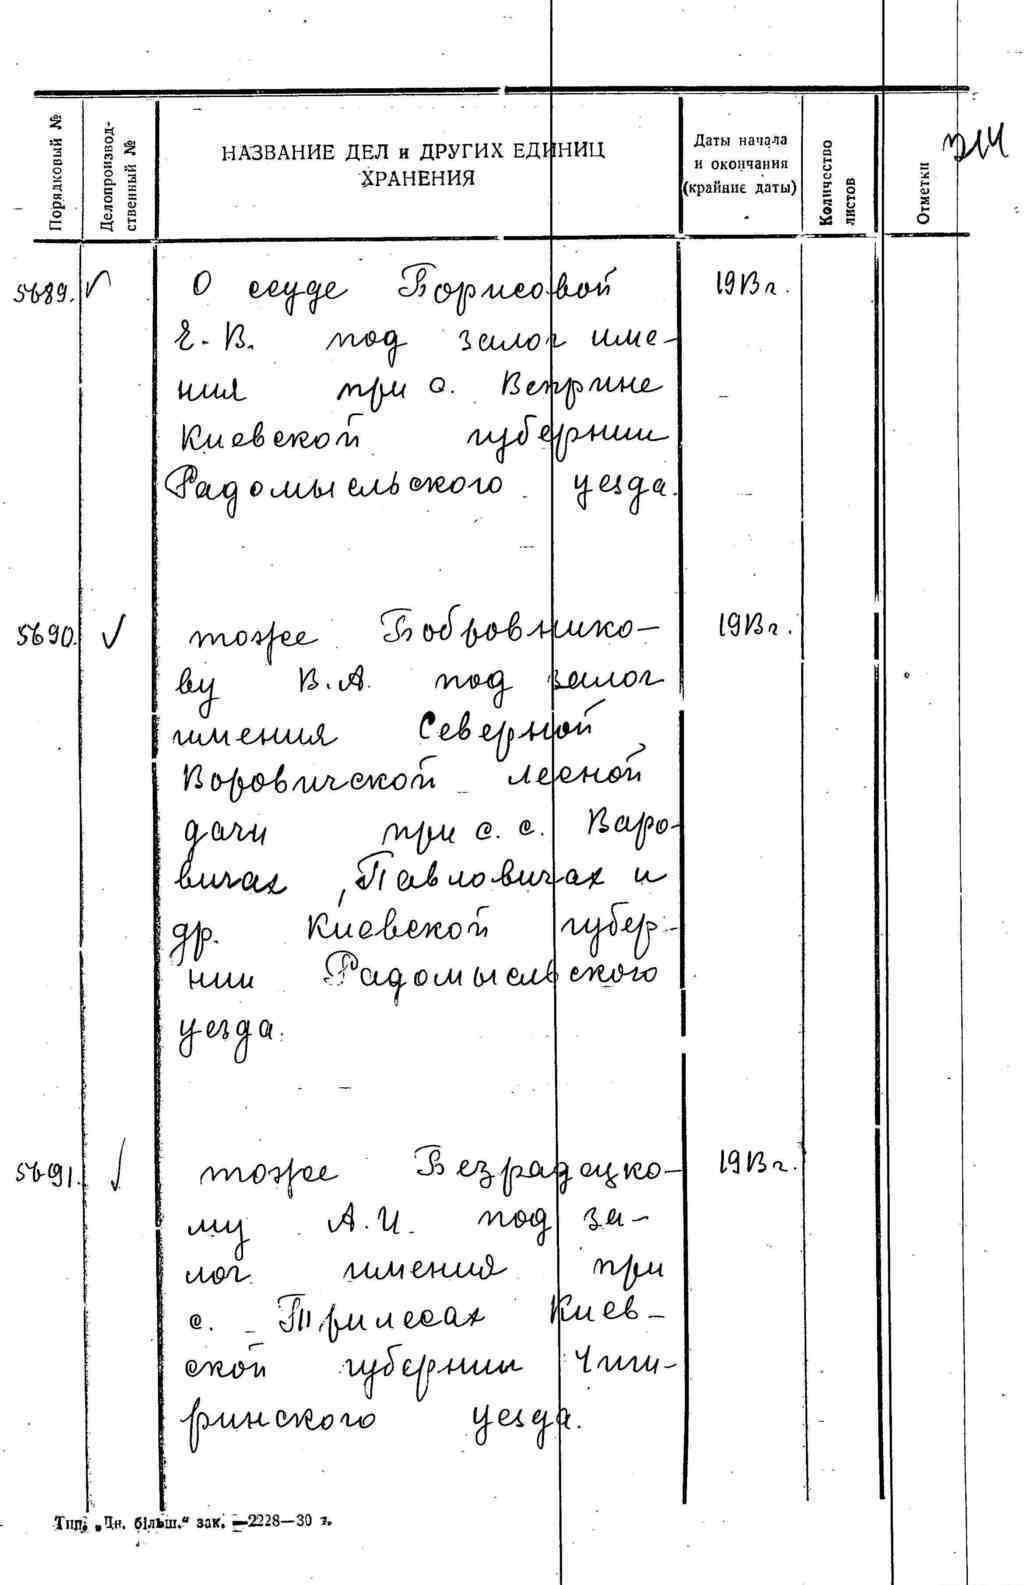 Порядковый №
Делопроизвод-
ственный №
НАЗВАНИЕ ДЕЛ и ДРУГИХ ЕДИНИЦ
ХРАНЕНИЯ
Даты начала
и окончания
(крайние даты)
Количество
листов
Отметки
314
5689. О ссуде Борисовой 1913 г.
Е. В. под залог име-
ния при с. Веприне
Киевской губернии
Радомысльского уезда.
5690. тоже Бобровнико- 1913 г.
ву В.А. под залог
имения Северной
Воровичской лесной
дачи при с. с. Варо-
вичах, Павловичах и
др. Киевской губер-
нии Радомысльского
уезда.
5691. тоже Безрадецко- 1913 г.
му А.И. под за-
лог имения при
с. Трилесах Киев-
ской губернии Чиги-
ринского уезда.
Тип. „Дн. більш.“ зак. —2228—30 т.